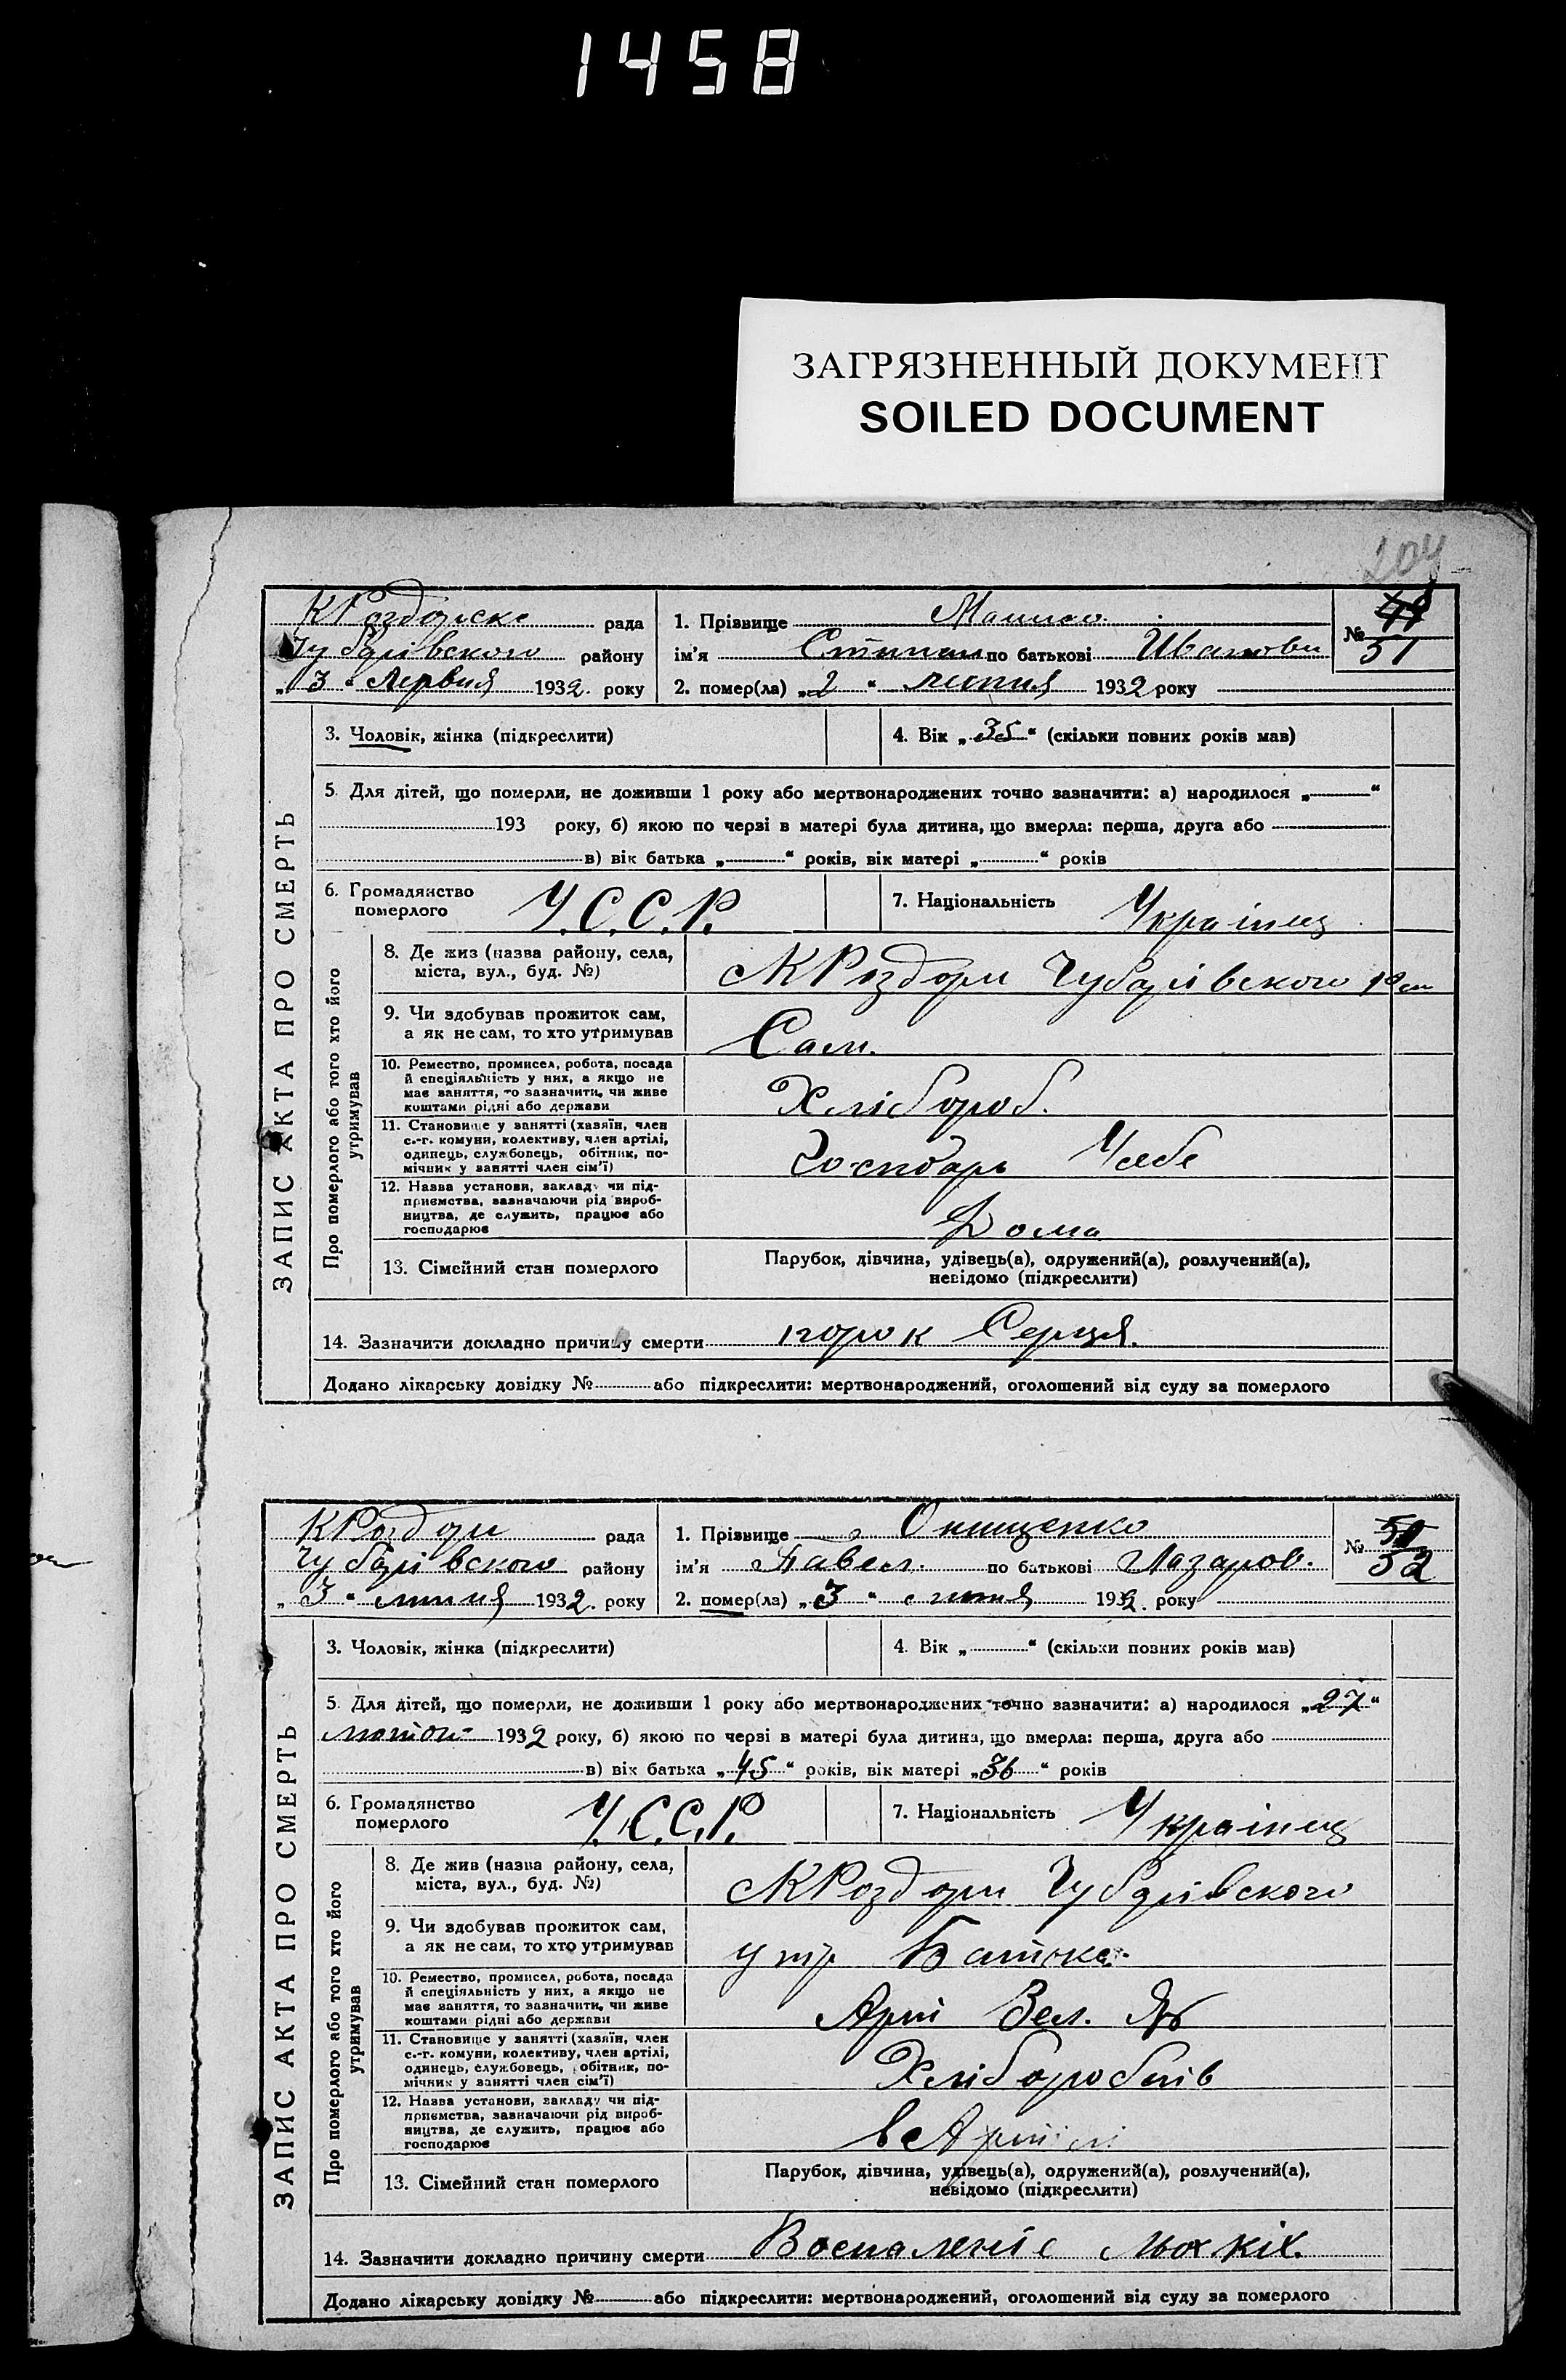 1458
ЗАГРЯЗНЕННЫЙ ДОКУМЕНТ
SOILED DOCUMENT
204
ЗАПИС АКТА ПРО СМЕРТЬ
рада
Чубарівського району
„3“ 1932. року
1. Прізвище
№ 51
ім'я Степан по батькові Иванови
2. помер(ла) „2“ липня 1932 року
3. Чоловік, жінка (підкреслити)
4. Вік „35“ (скільки повних років мав)
5. Для дітей, що померли, не доживши 1 року або мертвонароджених точно зазначити: а) народилося „ “
193 року, б) якою по черзі в матері була дитина, що вмерла: перша, друга або
в) вік батька „ “ років, вік матері „ “ років
6. Громадянство померлого У.С.С.Р.
7. Національність Українец
Про померлого або того хто його утримував
8. Де жив (назва району, села, міста, вул., буд. №)
К Роздори Чубарівского
9. Чи здобував прожиток сам, а як не сам, то хто утримував
Сам.
10. Ремество, промисел, робота, посада й спеціяльність у них, а якщо не має заняття, то зазначити, чи живе коштами рідні або держави
Хлібороб.
11. Становище у занятті (хазяїн, член с.-г. комуни, колективу, член артілі, одинець, службовець, обітник, помічник у занятті член сім'ї)
Господарь Усебе
12. Назва установи, закладу чи підприємства, зазначаючи рід виробництва, де служить, працює або господарює
Дома
13. Сімейний стан померлого
Парубок, дівчина, удівець(а), одружений(а), розлучений(а),
невідомо (підкреслити)
14. Зазначити докладно причину смерти порок Серця.
Додано лікарську довідку № або підкреслити: мертвонароджений, оголошений від суду за померлого
ЗАПИС АКТА ПРО СМЕРТЬ
К Роздори рада
Чубарівського району
„3“ липня 1932. року
1. Прізвище Онищенко
№ 52
ім'я Павел. по батькові Лазаров.
2. помер(ла) „3“ липня 1932. року
3. Чоловік, жінка (підкреслити)
4. Вік „ “ (скільки повних років мав)
5. Для дітей, що померли, не доживши 1 року або мертвонароджених точно зазначити: а) народилося „27“
1932 року, б) якою по черзі в матері була дитина, що вмерла: перша, друга або
в) вік батька „45“ років, вік матері „36“ років
6. Громадянство померлого У.С.С.Р.
7. Національність Українец
Про померлого або того хто його утримував
8. Де жив (назва району, села, міста, вул., буд. №)
К Роздори Чубарівского
9. Чи здобував прожиток сам, а як не сам, то хто утримував
утр Батько
10. Ремество, промисел, робота, посада й спеціяльність у них, а якщо не має заняття, то зазначити, чи живе коштами рідні або держави
11. Становище у занятті (хазяїн, член с.-г. комуни, колективу, член артілі, одинець, службовець, обітник, помічник у занятті член сім'ї)
12. Назва установи, закладу чи підприємства, зазначаючи рід виробництва, де служить, працює або господарює
13. Сімейний стан померлого
Парубок, дівчина, удівець(а), одружений(а), розлучений(а),
невідомо (підкреслити)
14. Зазначити докладно причину смерти Воспаленіе
Додано лікарську довідку № або підкреслити: мертвонароджений, оголошений від суду за померлого